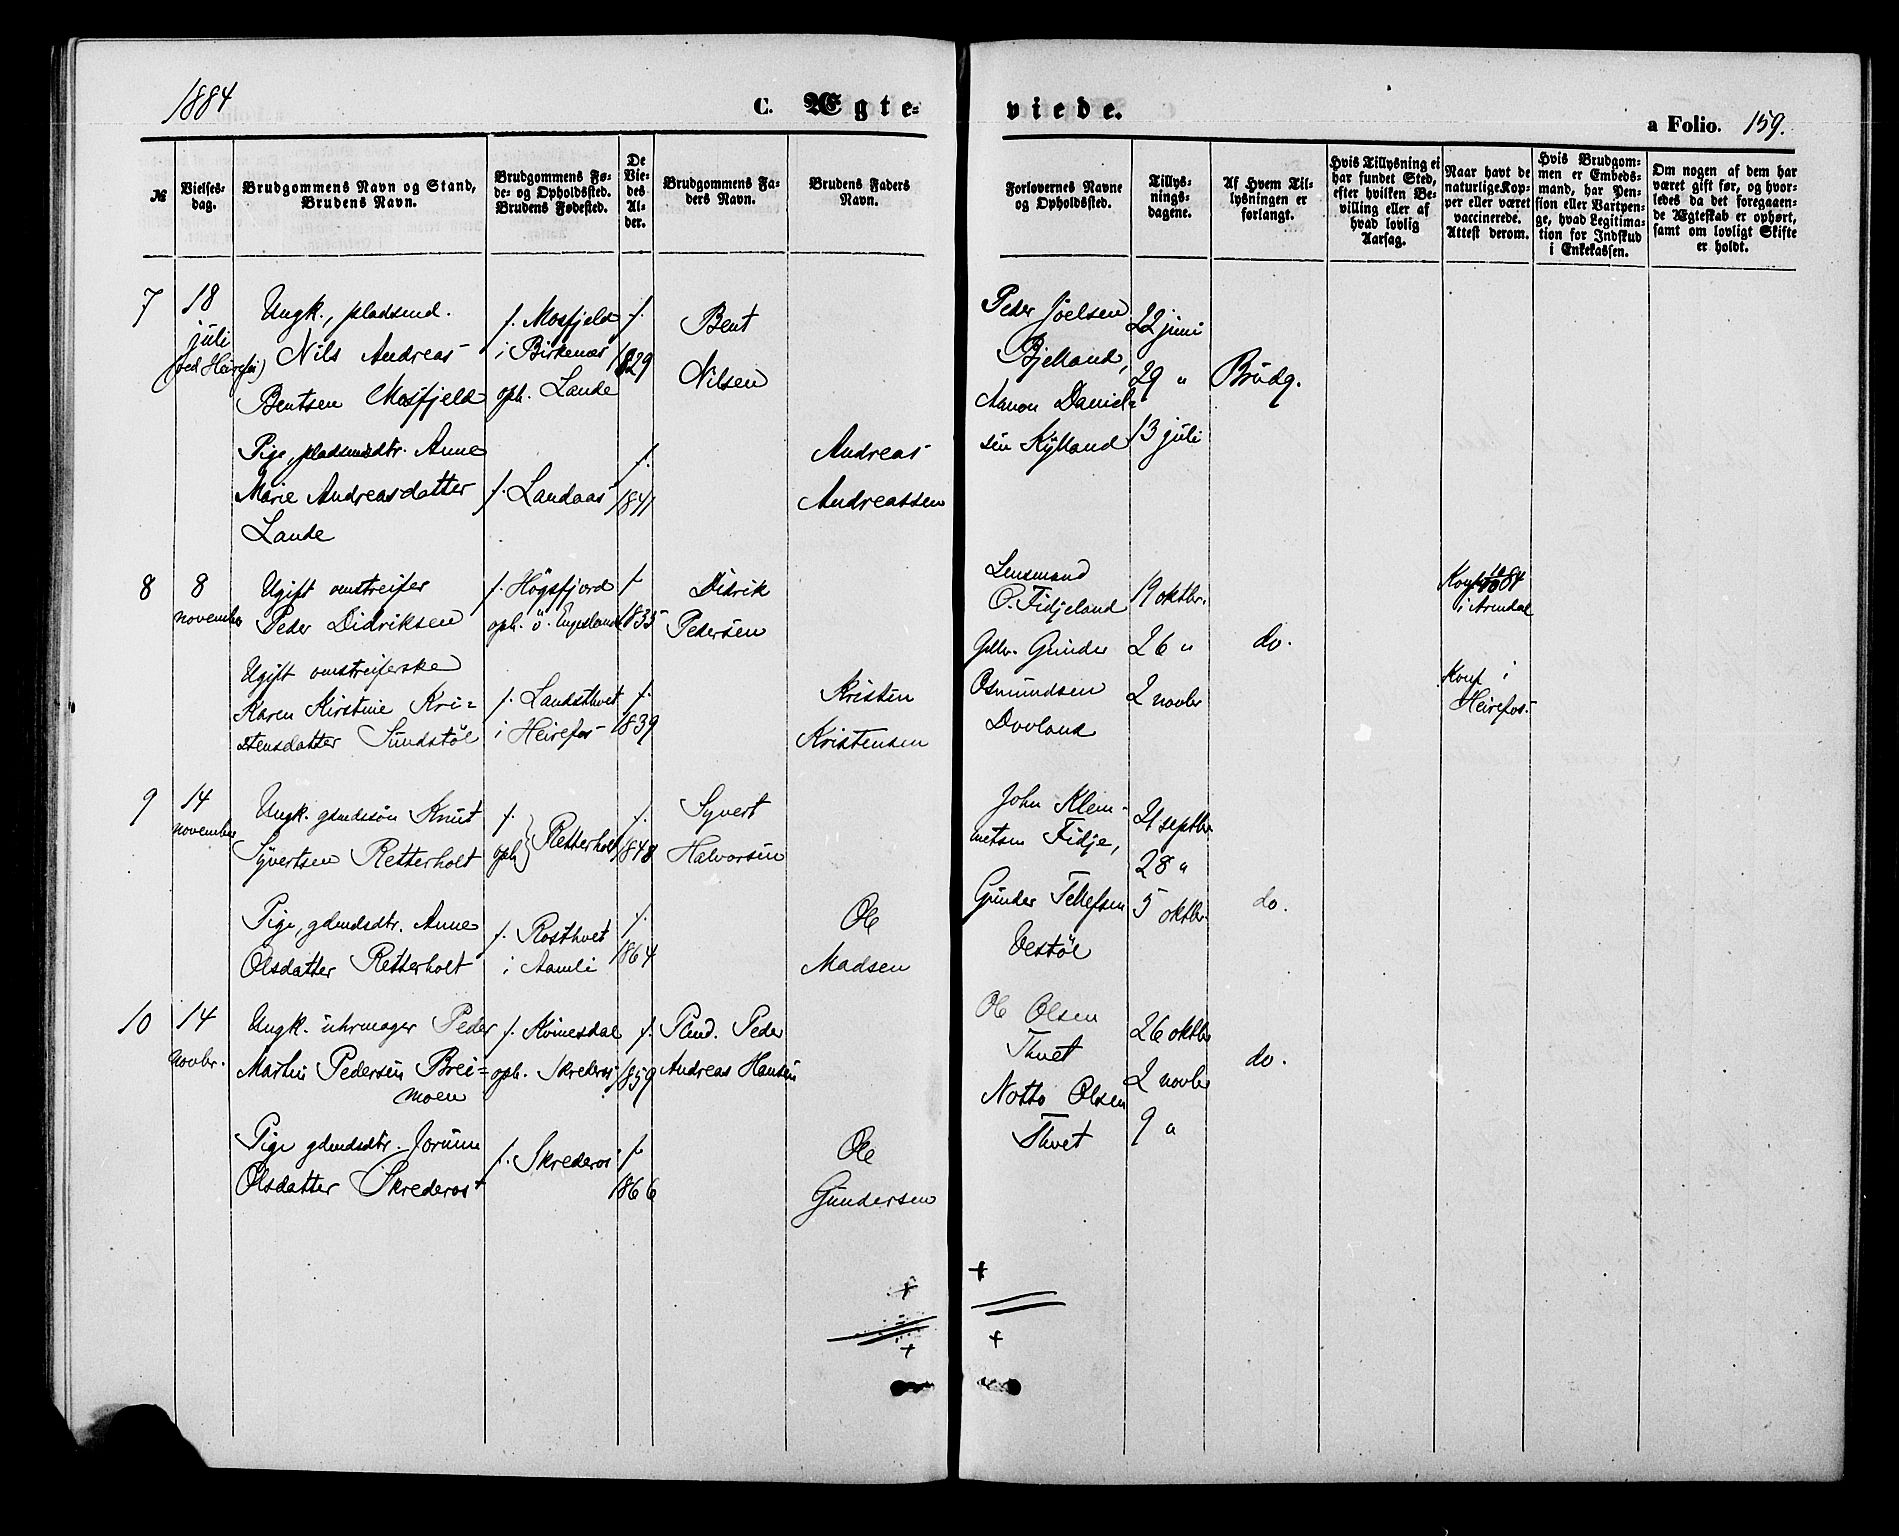 1884
C. Ægte-
viede.
a Folio. 159.
№
Vielses-
dag.
Brudgommens Navn og Stand,
Brudens Navn.
Brudgommens Fø-
de- og Opholdssted.
Brudens Fødested.
De
Vie-
des
Al-
der.
Brudgommens Fa-
ders Navn.
Brudens Faders
Navn.
Forlovernes Navne
og Opholdssted.
Tillys-
nings-
dagene.
Af Hvem Til-
lysningen er
forlangt.
Hvis Tillysning ei
har fundet Sted,
efter hvilken Be-
villing eller af
hvad lovlig
Aarsag.
Naar havt de
naturlige Kop-
per eller været
vaccinerede.
Attest derom.
Hvis Brudgom-
men er Embeds-
mand, har Pen-
sion eller Vartpen-
ge, hvad Legitima-
tion for Indskud
i Enkekassen.
Om nogen af dem har
været gift før, og hvor-
ledes da det foregaaen-
de Ægteskab er ophørt,
samt om lovligt Skifte
er holdt.
7
18
juli
(ved Heirefos)
Ungk., pladsmd.
Nils Andreas
Bentsen Mosfjeld
f. Mosfjeld
i Birkenæs
oph. Lande
f.
1829
Bent
Nilsen
Peder Joelsen
Bjelland,
Aanon Daniel-
sen Kylland
22 juni
29 "
13 juli
Brudg.
Pige, pladsmdsdtr. Anne
Marie Andreasdatter
Lande
f. Landaas
f.
1841
Andreas
Andreassen
8
8
november
Ugift omstreifer
Peder Didriksen
f. Högsfjord
oph. ö. Engesland
f
1835
Didrik
Pedersen
Lensmand
O. Fidjeland
Gdbr. Gunder
Osmundsen
Dovland
19 oktbr.
26 "
2 novbr
do.
Konf. 84
i Arendal
Ugift omstreiferske
Karen Kirstine Kri-
stensdatter Sundstöl
f. Landsthvet
i Heirefos
f.
1839
Kristen
Kristensen
Konf i
Heirefos
9
14
november
Ungk. gdmdssön Knut
Syvertsen Retterholt
f.
oph } Retterholt
f.
1848
Syvert
Halvorsen
John Klem-
metsen Fidje,
Gunder Tellefsen
Vestöl
21 septbr.
28 "
5 oktbr.
do.
Pige, gdmdsdtr. Anne
Olsdatter Retterholt
f. Rosthvet
i Aamli
f.
1864
Ole
Madsen
10
14
Novbr.
Ungk. uhrmager Peder
Martin Pedersen Brei-
moen
f. Kvinesdal
oph. Skrederos
f.
1859
Plmd. Peder
Andreas Hansen
Ole Olsen
Thvet
Notto Olsen
Thvet
26 oktbr
2 novbr
9 "
do.
Pige gdmdsdtr. Jorunn
Olsdatter Skrederos
f. Skrederos
f
1866
Ole
Gundersen